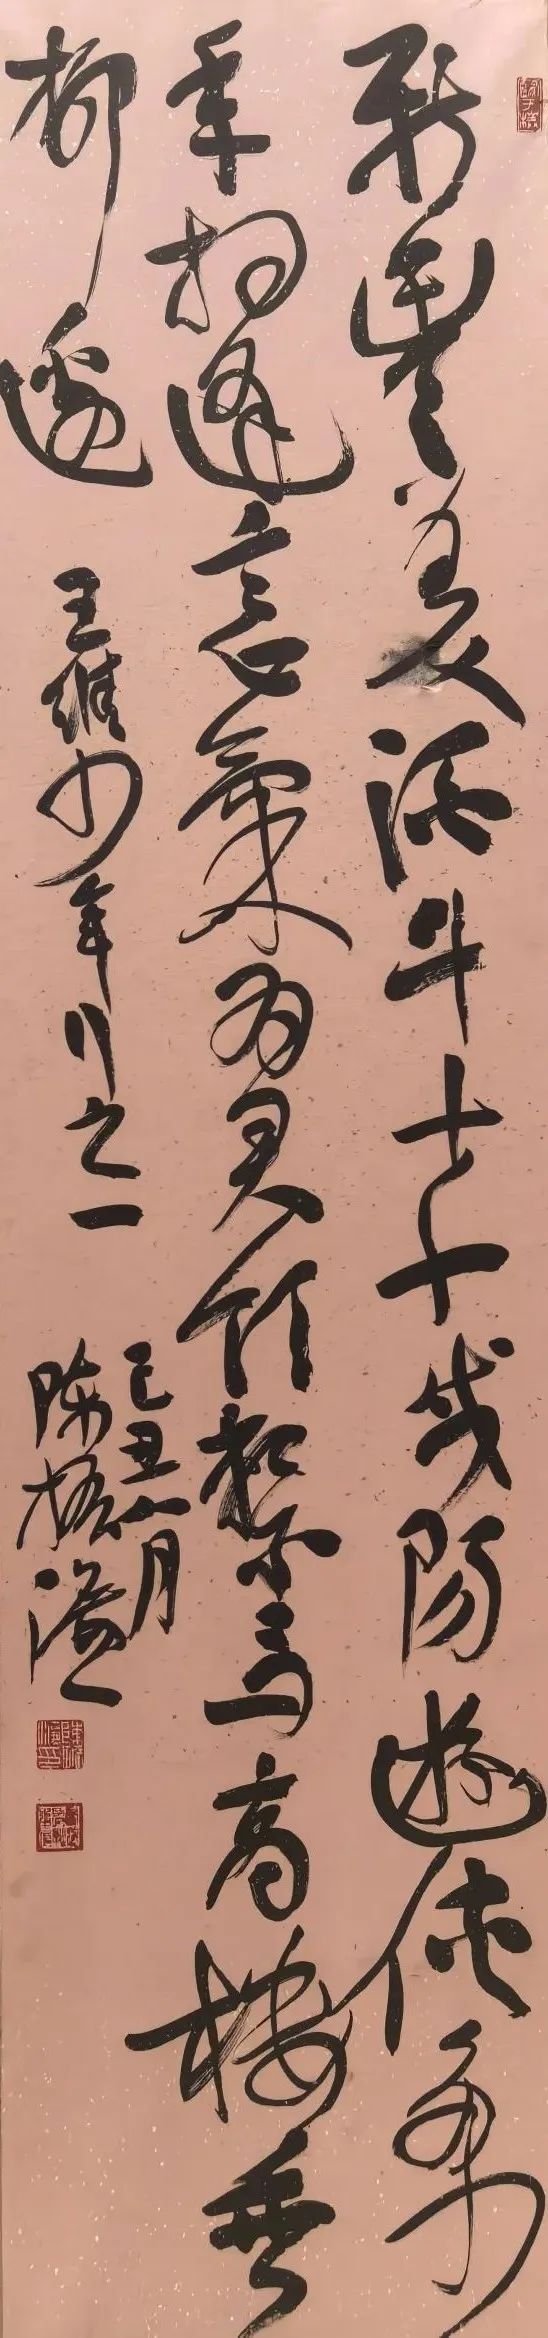 新豐美酒斗十千咸陽遊俠多少
年相逢意氣為君飲繫馬高樓垂
柳邊 王維少年行之一
己丑八月
陳振濂